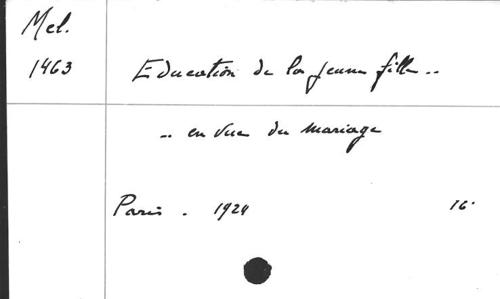 Mel.
1463
Education de la jeune fille ..
.. en vue du mariage
Paris . 1924 16°